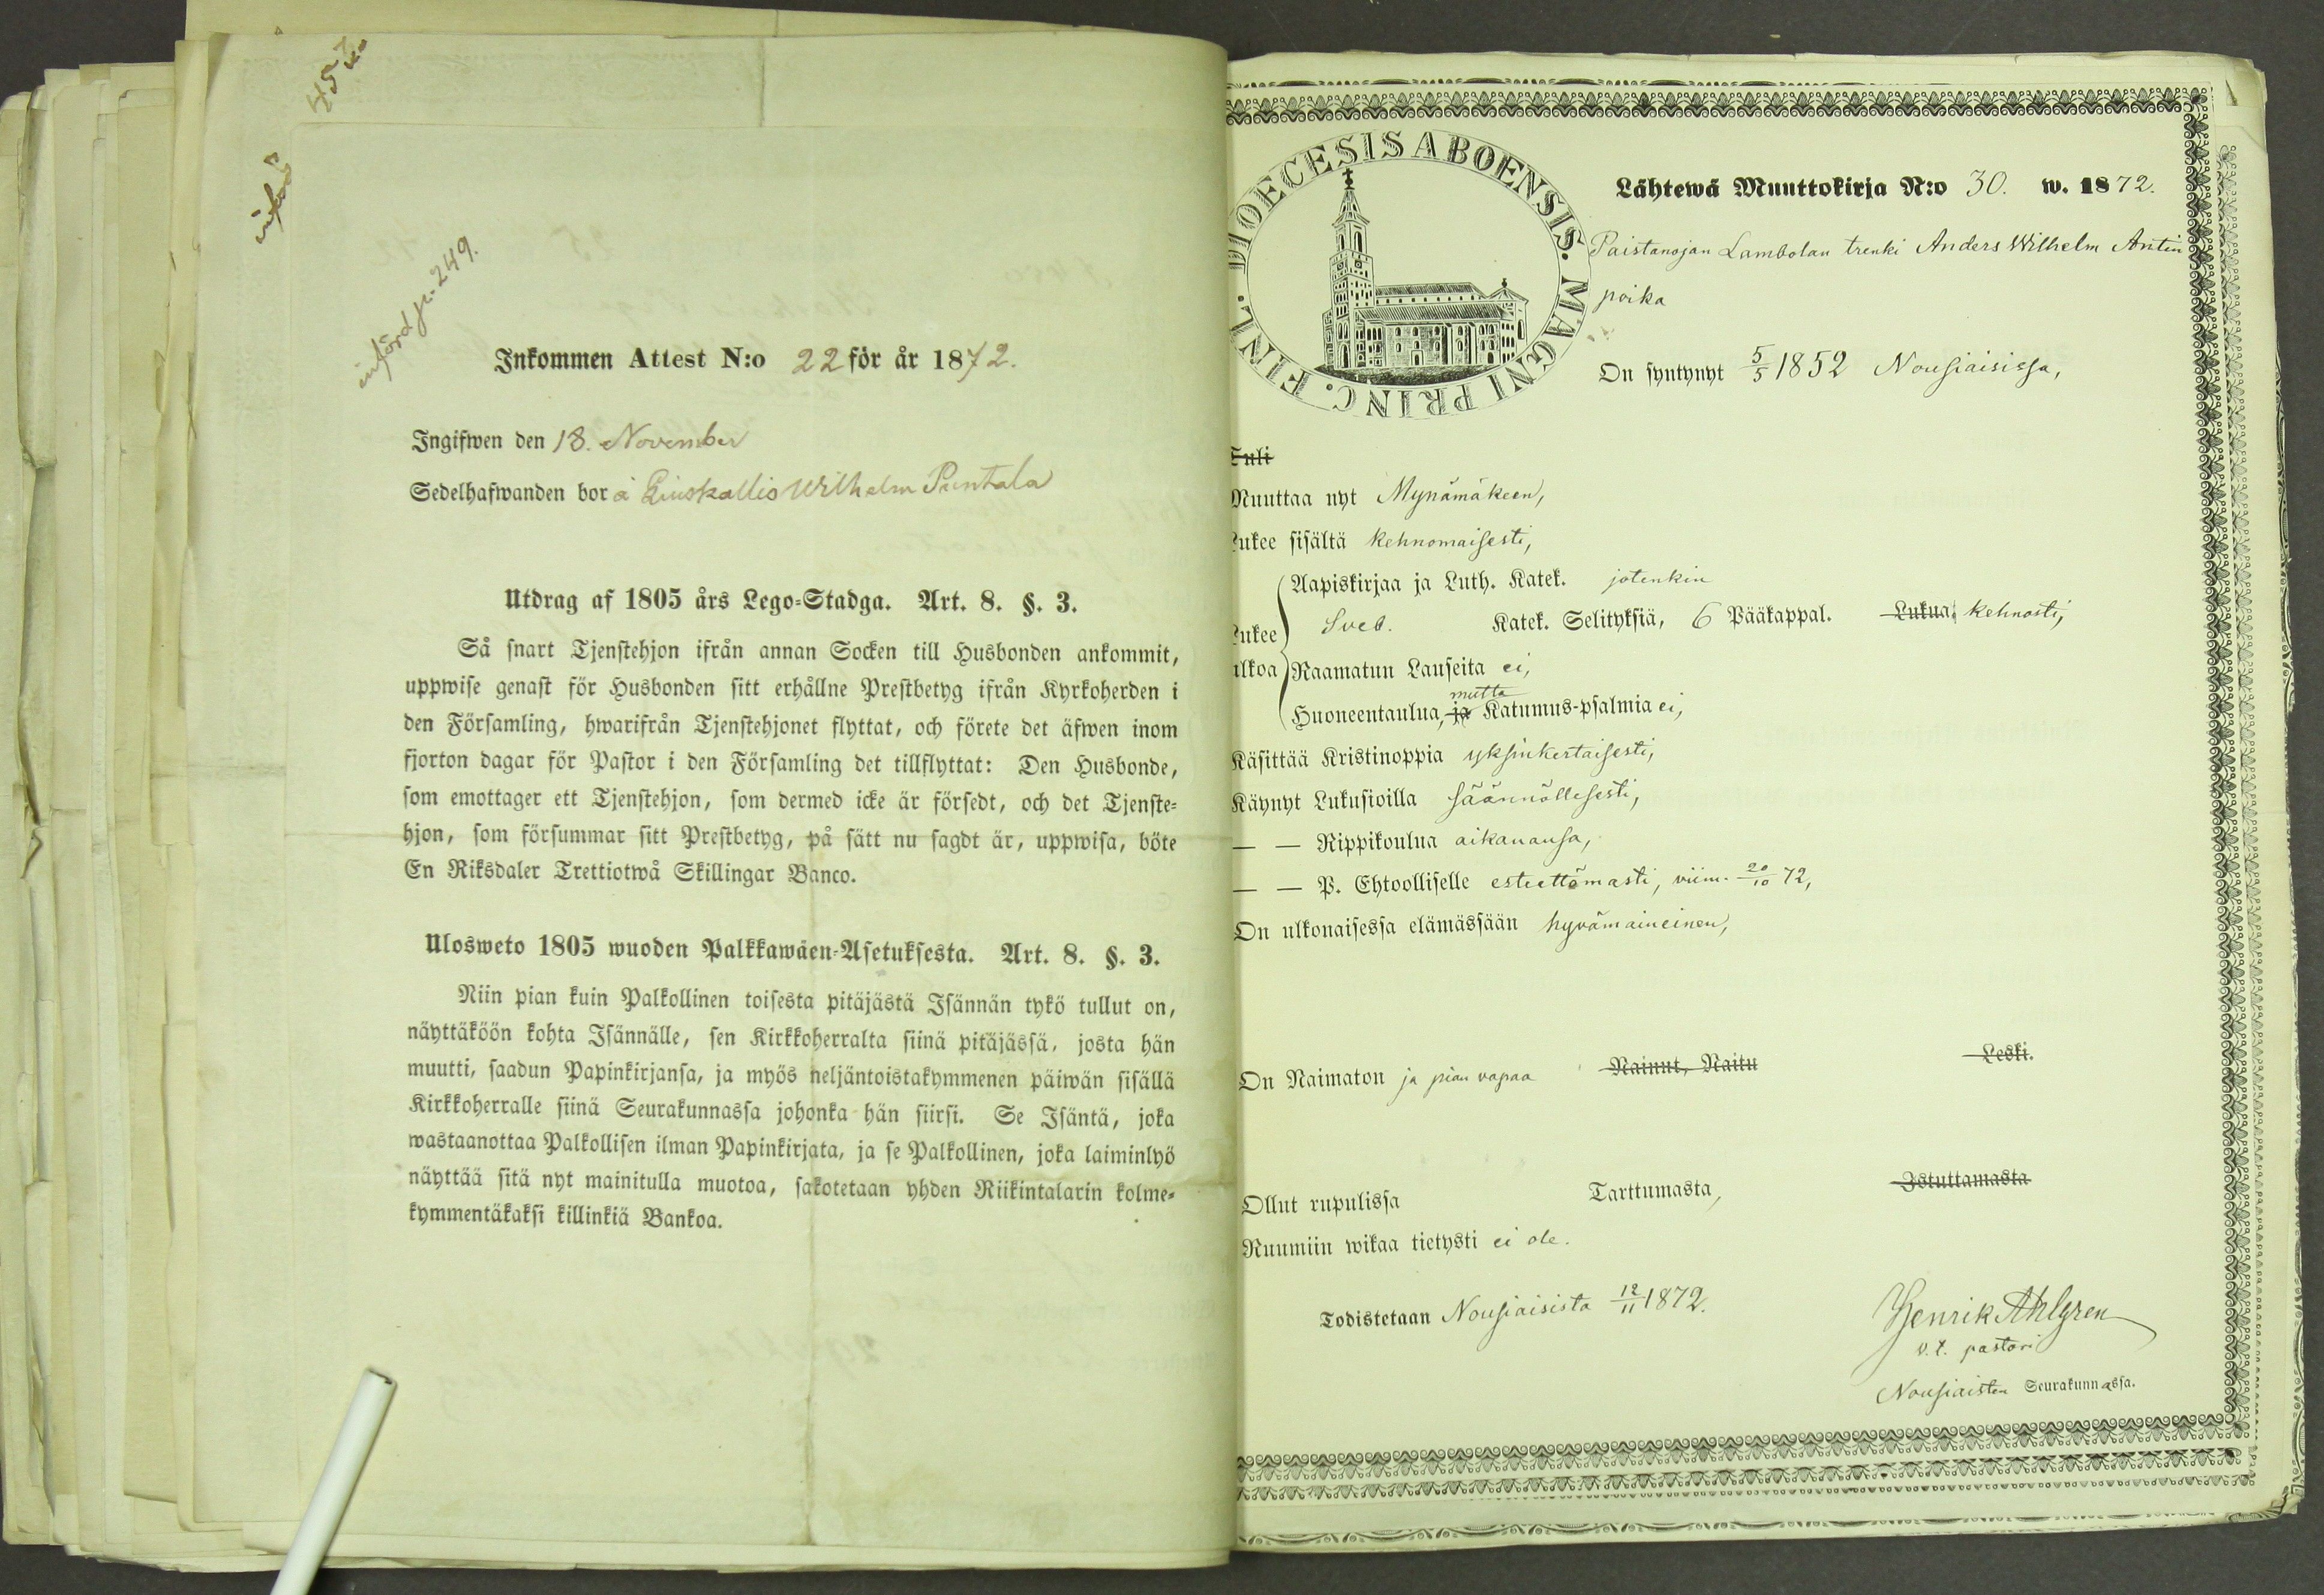 införd p. 249.
Inkommen Attest N:o 22 för år 1872.
Ingifwen den 18. November
Sedelhafwanden bor å Liuskallis Wilhelm Puntala
Utdrag af 1805 års Lego-Stadga. Art. 8. §. 3.
Så snart Tjenstehjon ifrån annan Socken till Husbonden ankommit,
uppwise genast för Husbonden sitt erhållne Prestbetyg ifrån Kyrkoherden i
den Församling, hwarifrån Tjenstehjonet flyttat, och förete det äfwen inom
fjorton dagar för Pastor i den Församling det tillflyttat: Den Husbonde,
som emottager ett Tjenstehjon, som dermed icke är försedt, och det Tjenste-
hjon, som försummar sitt Prestbetyg, på sätt nu sagdt är, uppwisa, böte
En Riksdaler Trettiotwå Skillingar Banco.
Ulosweto 1805 wuoden Palkkawäen-Asetuksesta. Art. 8. §. 3.
Niin pian kuin Palkollinen toisesta pitäjästä Isännän tykö tullut on,
näyttäköön kohta Isännälle, sen Kirkkoherralta siinä pitäjässä, josta hän
muutti, saadun Papinkirjansa, ja myös neljäntoistakymmenen päiwän sisällä
Kirkkoherralle siinä Seurakunnassa johonka hän siirsi. Se Isäntä, joka
wastaanottaa Palkollisen ilman Papinkirjata, ja se Palkollinen, joka laiminlyö
näyttää sitä nyt mainitulla muotoa, sakotetaan yhden Riikintalarin kolme-
kymmentäkaksi killinkiä Bankoa.
DIOECESIS ABOENSIS. MAGNI PRINC. FINL.
Lähtewä Muuttokirja N:o 30. w. 1872.
Paistanojan Lambolan trenki Anders Wilhelm Antin
poika
On syntynyt 5/5 1852 Nousiaisissa,
Tuli
Muuttaa nyt Mynämäkeen,
Lukee sisältä kehnomaisesti,
Aapiskirjaa ja Luth. Katek. jotenkin
Lukee ulkoa Sveb. Katek. Selityksiä, 6 Pääkappal. Lukua, kehnosti,
Raamatun Lauseita ei,
Huoneentaulua, ja mutta Katumus-psalmia ei,
Käsittää Kristinoppia yksinkertaisesti,
Käynyt Lukusioilla säännöllisesti,
— — Rippikoulua aikanansa,
— — P. Ehtoolliselle esteettömasti, viim. 20/10 72,
On ulkonaisessa elämässään hyvämaineinen,
On Naimaton ja pian vapaa Nainut, Naitu Leski.
Ollut rupulissa Tarttumasta, Istuttamasta
Ruumiin wikaa tietysti ei ole.
Todistetaan Nousiaisista 12/11 1872.
Henrik Ahlgren
v.t. pastori
Nousiaisten Seurakunnassa.